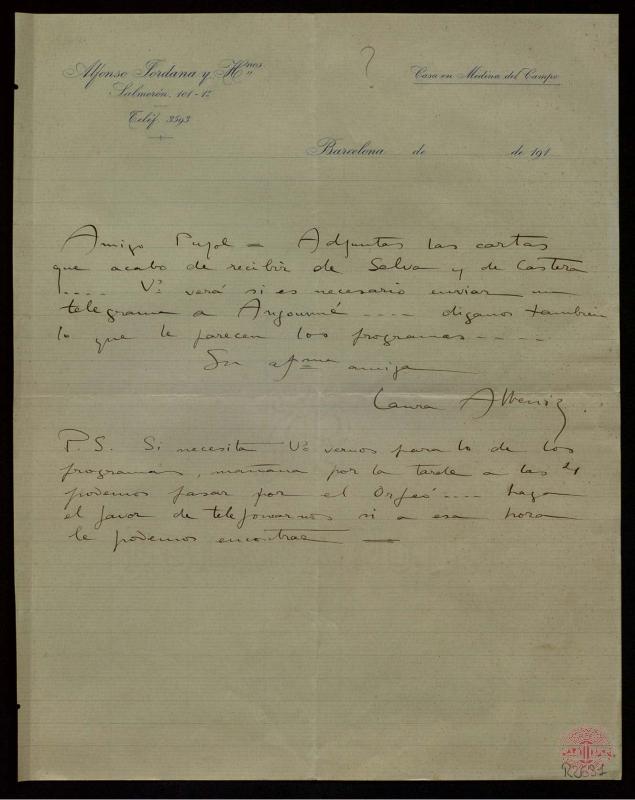 ?
Alfonso Jordana y Hnos
Salmerón, 101-1º
Teléf. 3593
Casa en Medina del Campo
Barcelona de de 191
Amigo Pujol = Adjuntas las cartas
que acabo de recibir de Selva y de Castera
.... Vd verá si es necesario enviar un
telegrama a .... diganos tambien
lo que le parecen los programas.....
Su afma amiga
Laura Albeniz
P.S. Si necesita Vd vernos para lo de los
programas, mañana por la tarde a las
podemos pasar por el Orfeó.... haga
el favor de telefonearnos si a esa hora
le podemos encontrar —
R2697